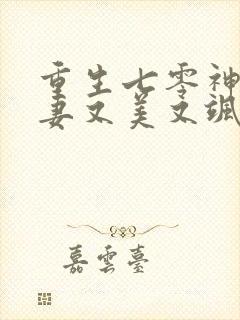 重生七零神
妻又美又飒
嘉雲臺